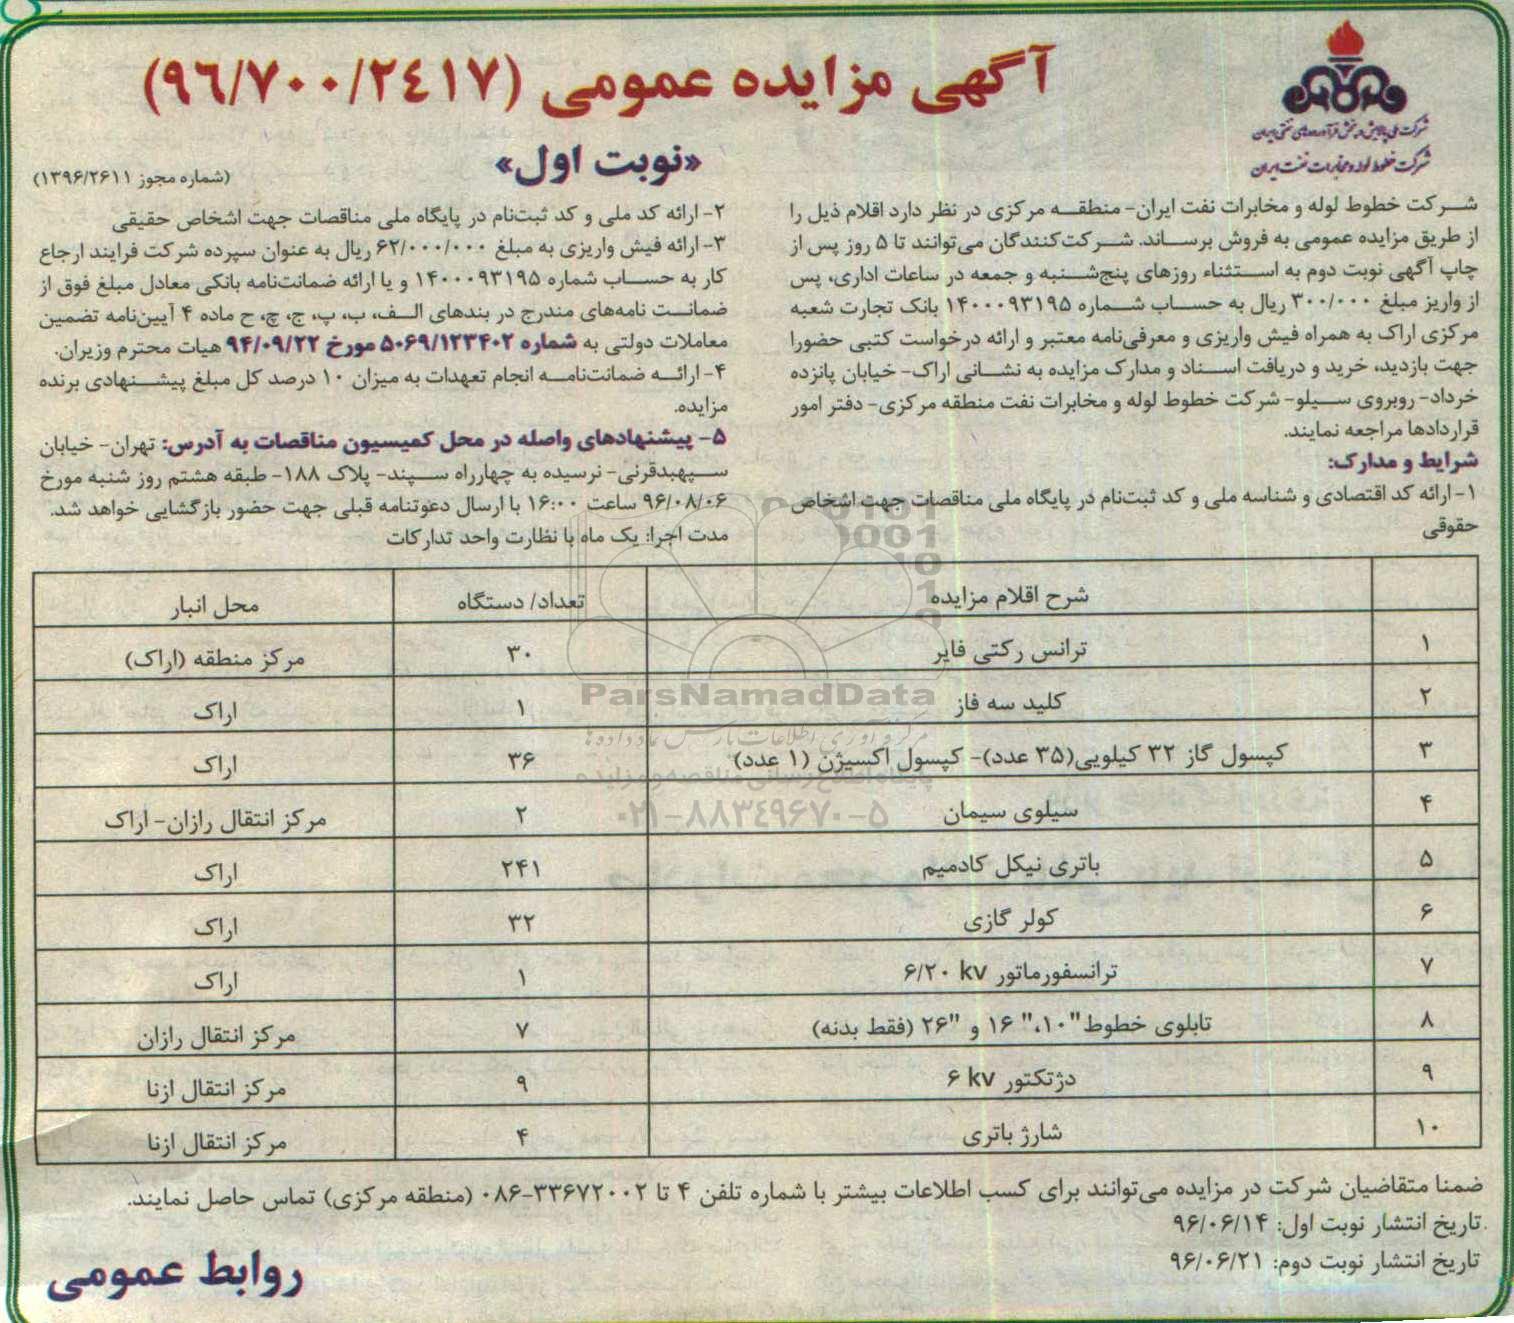 آگهی مزایده عمومی (۹۶/۷۰۰/۲۴۱۷)
«نوبت اول»
(شماره مجوز ۱۳۹۶/۲۶۱۱)
شرکت ملی پالایش و پخش فرآورده‌های نفتی ایران
شرکت خطوط لوله و مخابرات نفت ایران
شرکت خطوط لوله و مخابرات نفت ایران- منطقه مرکزی در نظر دارد اقلام ذیل را
از طریق مزایده عمومی به فروش برساند. شرکت‌کنندگان می‌توانند تا ۵ روز پس از
چاپ آگهی نوبت دوم به استثناء روزهای پنج‌شنبه و جمعه در ساعات اداری، پس
از واریز مبلغ ۳۰۰/۰۰۰ ریال به حساب شماره ۱۴۰۰۰۹۳۱۹۵ بانک تجارت شعبه
مرکزی اراک به همراه فیش واریزی و معرفی‌نامه معتبر و ارائه درخواست کتبی حضورا
جهت بازدید، خرید و دریافت اسناد و مدارک مزایده به نشانی اراک- خیابان پانزده
خرداد- روبروی سیلو- شرکت خطوط لوله و مخابرات نفت منطقه مرکزی- دفتر امور
قراردادها مراجعه نمایند.
شرایط و مدارک:
۱- ارائه کد اقتصادی و شناسه ملی و کد ثبت‌نام در پایگاه ملی مناقصات جهت اشخاص
حقوقی
۲- ارائه کد ملی و کد ثبت‌نام در پایگاه ملی مناقصات جهت اشخاص حقیقی
۳- ارائه فیش واریزی به مبلغ ۶۲/۰۰۰/۰۰۰ ریال به عنوان سپرده شرکت فرایند ارجاع
کار به حساب شماره ۱۴۰۰۰۹۳۱۹۵ و یا ارائه ضمانت‌نامه بانکی معادل مبلغ فوق از
ضمانت نامه‌های مندرج در بندهای الف، ب، پ، ج، چ، ح ماده ۴ آیین‌نامه تضمین
معاملات دولتی به شماره ۵۰۶۹/۱۲۳۴۰۲ مورخ ۹۴/۰۹/۲۲ هیات محترم وزیران.
۴- ارائه ضمانت‌نامه انجام تعهدات به میزان ۱۰ درصد کل مبلغ پیشنهادی برنده
مزایده.
۵- پیشنهادهای واصله در محل کمیسیون مناقصات به آدرس: تهران- خیابان
سپهبدقرنی- نرسیده به چهارراه سپند- پلاک ۱۸۸- طبقه هشتم روز شنبه مورخ
۹۶/۰۸/۰۶ ساعت ۱۶:۰۰ با ارسال دعوتنامه قبلی جهت حضور بازگشایی خواهد شد.
مدت اجرا: یک ماه با نظارت واحد تدارکات
شرح اقلام مزایده تعداد/ دستگاه محل انبار
۱ ترانس رکتی فایر ۳۰ مرکز منطقه (اراک)
۲ کلید سه فاز ۱ اراک
۳ کپسول گاز ۳۲ کیلویی(۳۵ عدد)- کپسول اکسیژن (۱ عدد) ۳۶ اراک
۴ سیلوی سیمان ۲ مرکز انتقال رازان- اراک
۵ باتری نیکل کادمیم ۲۴۱ اراک
۶ کولر گازی ۳۲ اراک
۷ ترانسفورماتور ۶/۲۰ kv ۱ اراک
۸ تابلوی خطوط "۱۰، "۱۶ و "۲۶ (فقط بدنه) ۷ مرکز انتقال رازان
۹ دژنکتور ۶ kv ۹ مرکز انتقال ازنا
۱۰ شارژ باتری ۴ مرکز انتقال ازنا
ParsNamadData
مرکز فرآوری اطلاعات پارس نماد داده‌ها
پایگاه اطلاع رسانی مناقصه و مزایده
۰۲۱-۸۸۳۴۹۶۷۰-۵
ضمنا متقاضیان شرکت در مزایده می‌توانند برای کسب اطلاعات بیشتر با شماره تلفن ۴ تا ۳۳۶۷۲۰۰۲-۰۸۶ (منطقه مرکزی) تماس حاصل نمایند.
تاریخ انتشار نوبت اول: ۹۶/۰۶/۱۴
تاریخ انتشار نوبت دوم: ۹۶/۰۶/۲۱
روابط عمومی